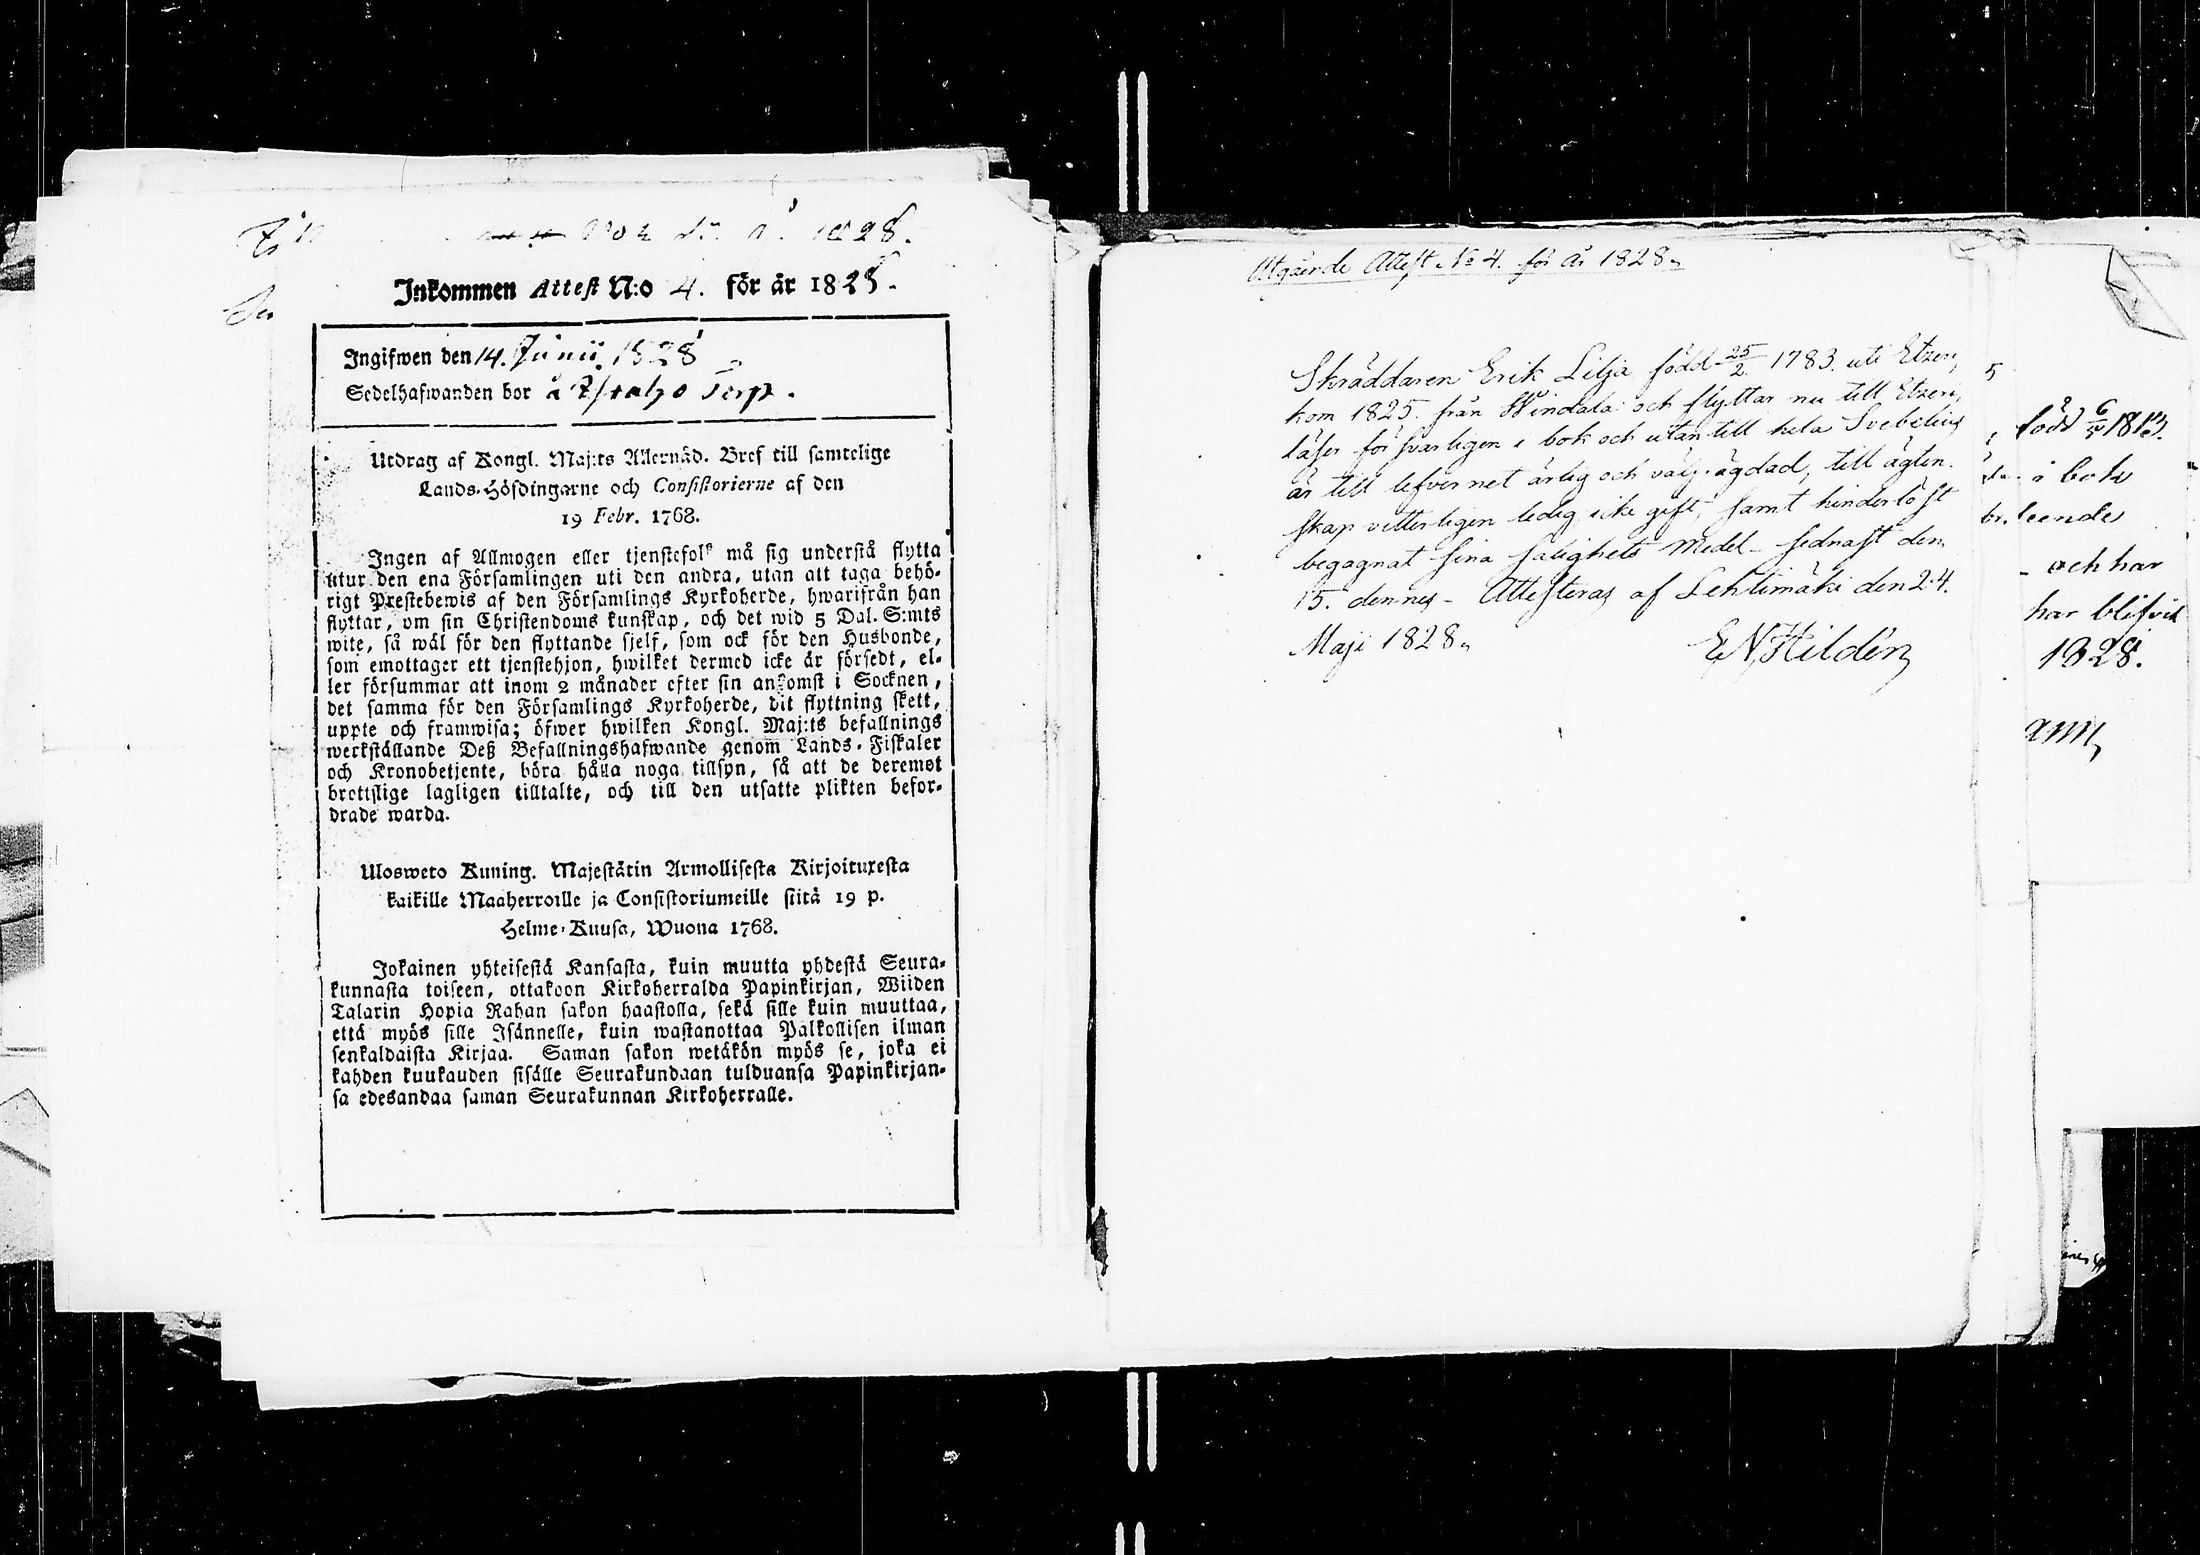 No 2 1828.
Inkommen Attest N:o 4. för år 1828.
Ingifwen den 14. Junii. 1828
Sedelhafwanden bor å Torp.
Utdrag af Kongl. Maj:ts Allernåd. Bref till samtelige
Lands-Höfdingarne och Consistorierne af den
19 Febr. 1768.
Ingen af Allmogen eller tjenstefolk må sig understå flytta
utur den ena Församlingen uti den andra, utan att taga behö-
rigt Prestebewis af den Församlings Kyrkoherde, hwarifrån han
flyttar, om sin Christendoms kunskap, och det wid 5 Dal. S:mts
wite, så wäl för den flyttande sjelf, som ock för den Husbonde,
som emottager ett tjenstehjon, hwilket dermed icke är försedt, el-
ler försummar att inom 2 månader efter sin ankomst i Socknen,
det samma för den Församlings Kyrkoherde, dit flyttning skett,
uppte och framwisa; öfwer hwilken Kongl. Maj:ts befallnings
werkställande Deß Befallningshafwande genom Lands-Fiskaler
och Kronobetjente, böra hålla noga tillsyn, så att de deremot
brottslige lagligen tilltalte, och till den utsatte plikten befor-
drade warda.
Ulosweto Kuning. Majestätin Armollisesta Kirjoituxesta
kaikille Maaherroille ja Consistoriumeille siitä 19 p.
Helme-Kuusa, Wuona 1768.
Jokainen yhteisestä Kansasta, kuin muutta yhdestä Seura-
kunnasta toiseen, ottakoon Kirkoherralda Papinkirjan, Wiiden
Talarin Hopia Rahan sakon haastolla, sekä sille kuin muuttaa,
että myös sille Isännelle, kuin wastanottaa Palkollisen ilman
senkaldaista Kirjaa. Saman sakon wetäkön myös se, joka ei
kahden kuukauden sisälle Seurakundaan tulduansa Papinkirjan-
sa edesandaa saman Seurakunnan Kirkoherralle.
Utgående Attest No 4. för år 1828.
Skräddaren Erik Lilja född 25/2 1783. uti Etzeri,
kom 1825. från Windala och flyttar nu till Etzeri,
läser försvarligen i bok och utantill hela Svebelius
är till lefvernet ärlig och välfrägdad, till ägten-
skap vitterligen ledig icke gift, samt hinderlöst
begagnat sina salighets medel sednast den
15. dennes - Attesteras af Lehtimäki den 24.
Maji 1828.
E N Hildén
född 6/5 1813.
i bok
leende
och har
har blifvit
1828.